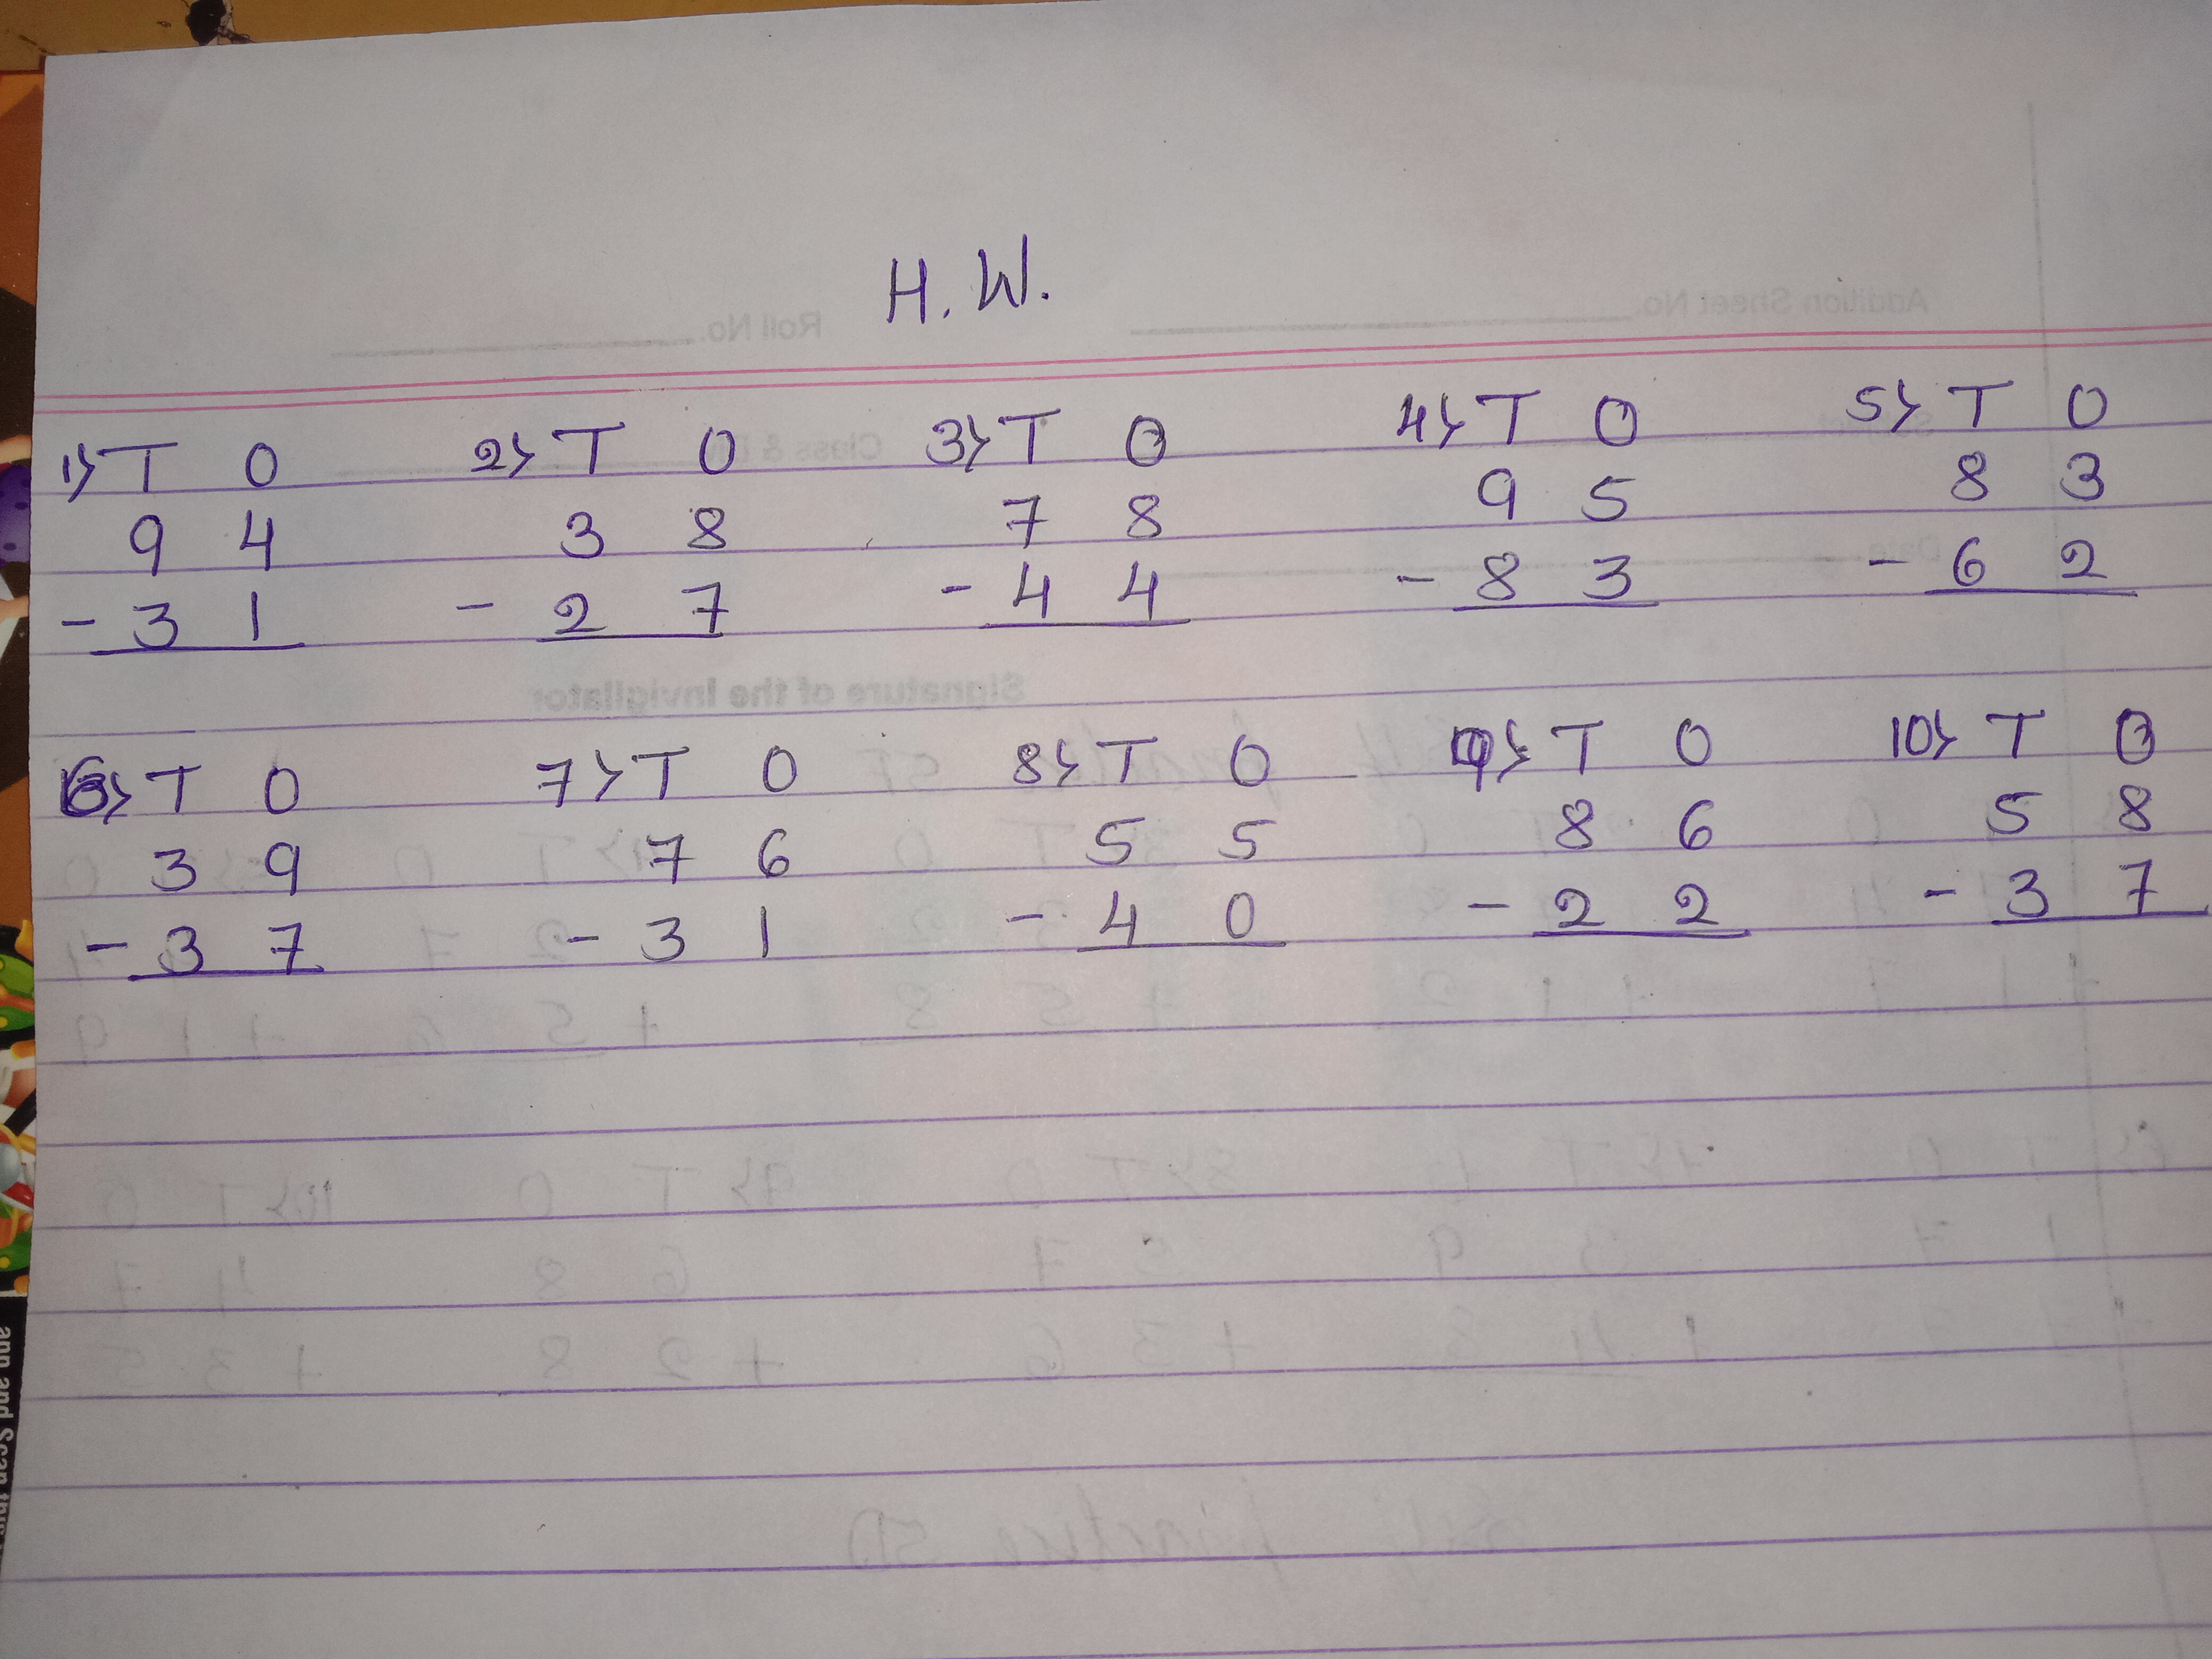 H. W.
1) T O 2) T O 3) T O 4) T O 5) T O
9 4 3 8 7 8 9 5 8 3
- 3 1 - 2 7 - 4 4 - 8 3 - 6 2
6) T O 7) T O 8) T O 9) T O 10) T O
3 9 7 6 5 5 8 6 5 8
- 3 7 - 3 1 - 4 0 - 2 2 - 3 7
Addition Sheet No.
Roll No.
Signature of the Invigilator